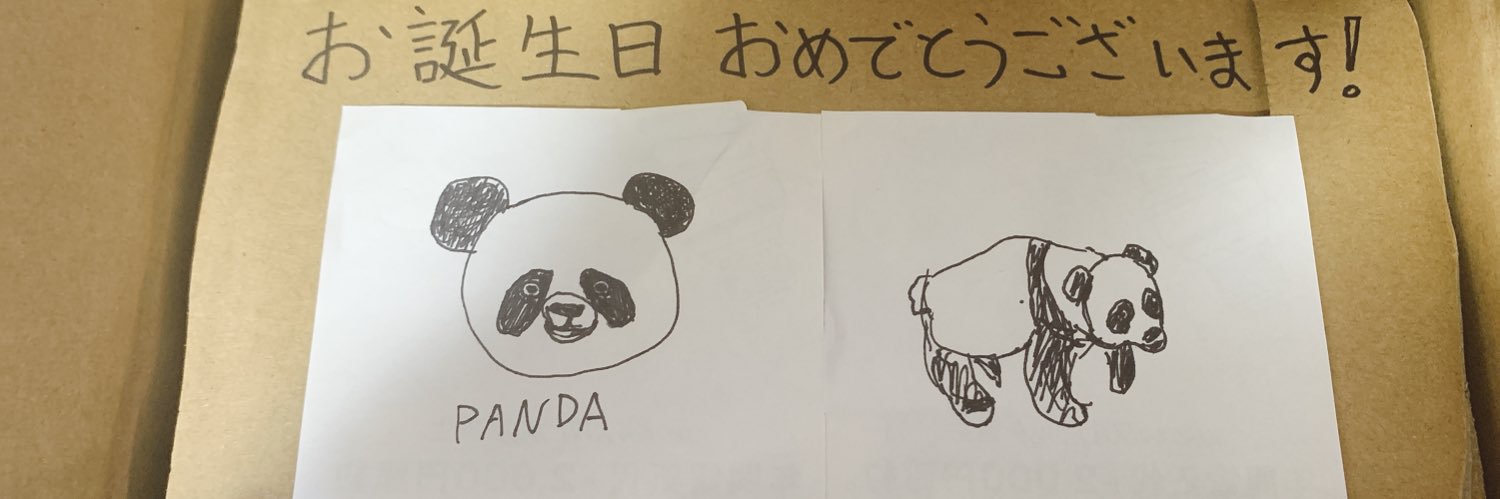 お誕生日 おめでとうございます!
PANDA